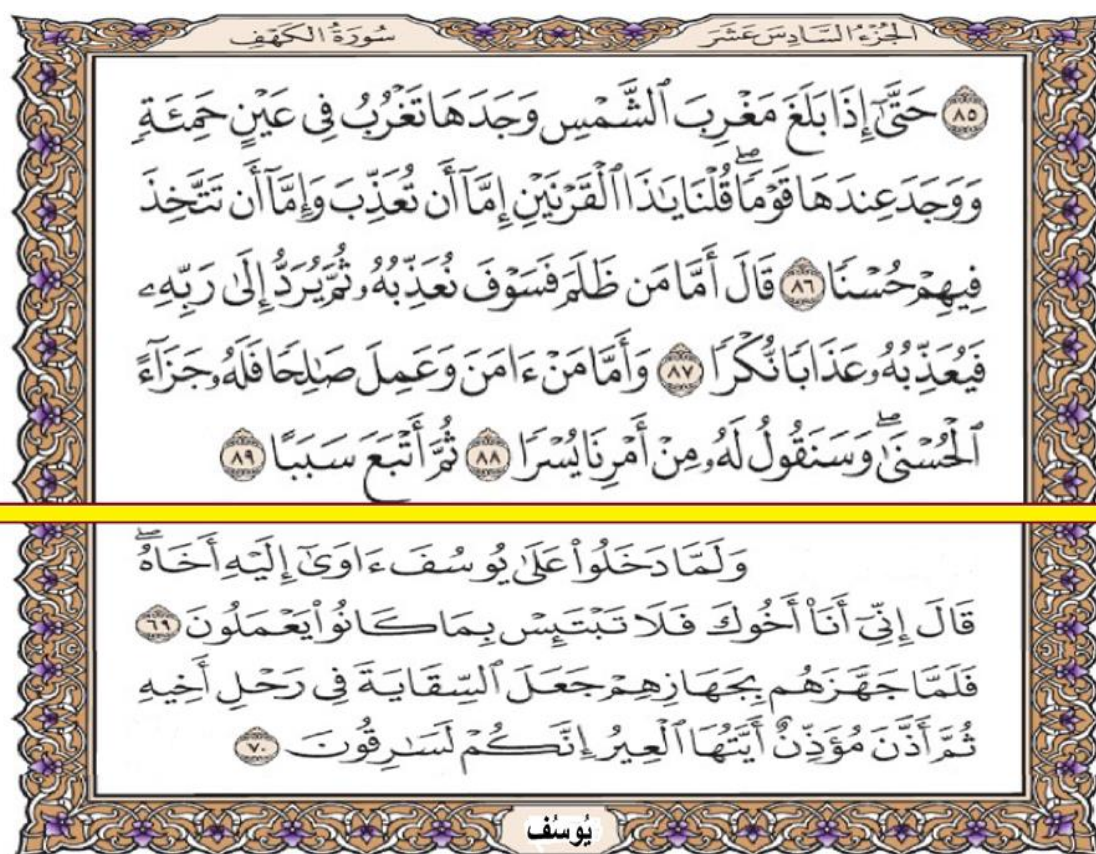 الجزء السادس عشر
سورة الكهف
٨٥ حَتَّىٰٓ إِذَا بَلَغَ مَغْرِبَ ٱلشَّمْسِ وَجَدَهَا تَغْرُبُ فِى عَيْنٍ حَمِئَةٍ
وَوَجَدَ عِندَهَا قَوْمًا ۖ قُلْنَا يَـٰذَا ٱلْقَرْنَيْنِ إِمَّآ أَن تُعَذِّبَ وَإِمَّآ أَن تَتَّخِذَ
فِيهِمْ حُسْنًا ٨٦ قَالَ أَمَّا مَن ظَلَمَ فَسَوْفَ نُعَذِّبُهُۥ ثُمَّ يُرَدُّ إِلَىٰ رَبِّهِۦ
فَيُعَذِّبُهُۥ عَذَابًا نُّكْرًا ٨٧ وَأَمَّا مَنْ ءَامَنَ وَعَمِلَ صَـٰلِحًا فَلَهُۥ جَزَآءً
ٱلْحُسْنَىٰ ۖ وَسَنَقُولُ لَهُۥ مِنْ أَمْرِنَا يُسْرًا ٨٨ ثُمَّ أَتْبَعَ سَبَبًا ٨٩
وَلَمَّا دَخَلُوا۟ عَلَىٰ يُوسُفَ ءَاوَىٰٓ إِلَيْهِ أَخَاهُ ۖ
قَالَ إِنِّىٓ أَنَا۠ أَخُوكَ فَلَا تَبْتَئِسْ بِمَا كَانُوا۟ يَعْمَلُونَ ٦٩
فَلَمَّا جَهَّزَهُم بِجَهَازِهِمْ جَعَلَ ٱلسِّقَايَةَ فِى رَحْلِ أَخِيهِ
ثُمَّ أَذَّنَ مُؤَذِّنٌ أَيَّتُهَا ٱلْعِيرُ إِنَّكُمْ لَسَـٰرِقُونَ ٧٠
يُوسُف